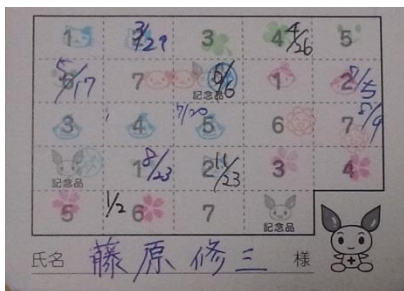 1 2 3/29 3 4 4/26 5
6 5/17 7 記念品 6/6 1 2 7/5
3 4 7/20 5 6 7 8/9
記念品 1 8/23 2 11/23 3 4
5 1/2 6 7 記念品
氏名 藤原修三 様